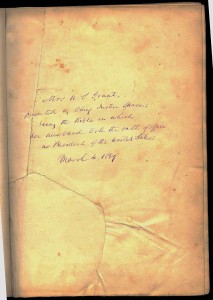 Mrs U. S. Grant.
Presented by Chief Justice Chase,
being the Bible on which
her husband took the oath of office
as President of the United States
March 4, 1869